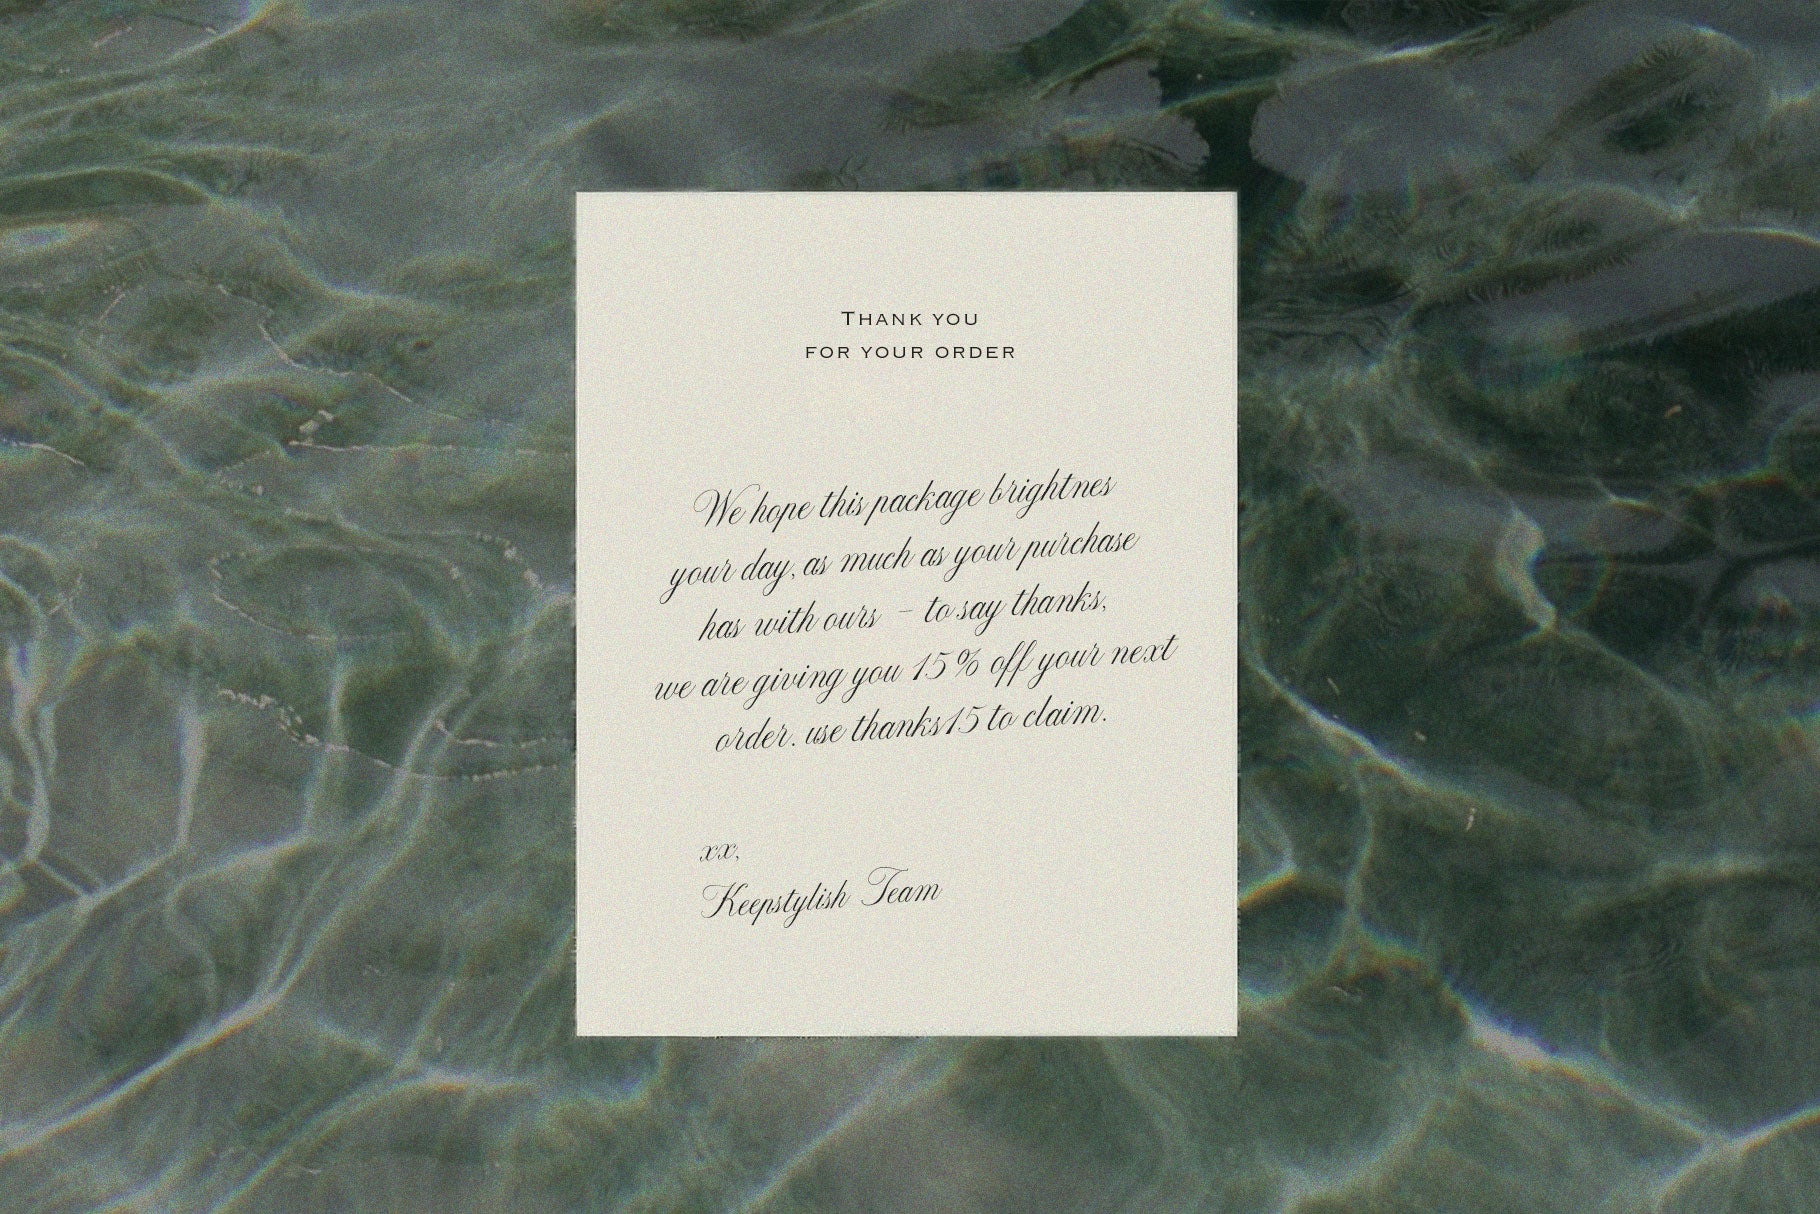 THANK YOU
FOR YOUR ORDER
We hope this package brightnes
your day, as much as your purchase
has with ours – to say thanks,
we are giving you 15% off your next
order. use thanks15 to claim.
xx,
Keepstylish Team